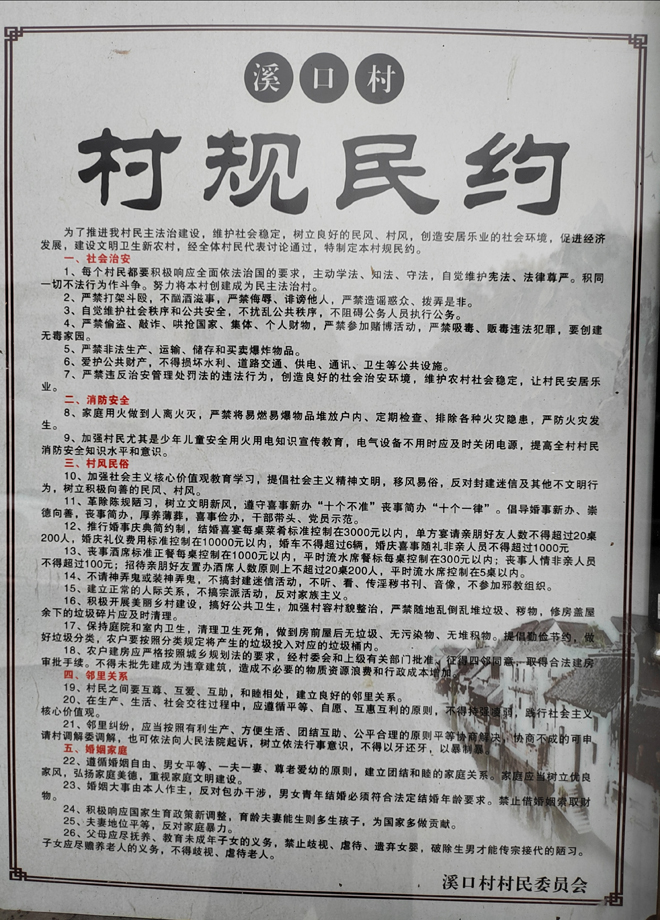 溪口村
村规民约
为了推进我村民主法治建设，维护社会稳定，树立良好的民风、村风，创造安居乐业的社会环境，促进经济
发展，建设文明卫生新农村，经全体村民代表讨论通过，特制定本村规民约。
一、社会治安
1、每个村民都要积极响应全面依法治国的要求，主动学法、知法、守法，自觉维护宪法、法律尊严。积同
一切不法行为作斗争。努力将本村创建成为民主法治村。
2、严禁打架斗殴，不酗酒滋事，严禁侮辱、诽谤他人，严禁造谣惑众、拨弄是非。
3、自觉维护社会秩序和公共安全，不扰乱公共秩序，不阻碍公务人员执行公务。
4、严禁偷盗、敲诈、哄抢国家、集体、个人财物，严禁参加赌博活动，严禁吸毒、贩毒违法犯罪，要创建
无毒家园。
5、严禁非法生产、运输、储存和买卖爆炸物品。
6、爱护公共财产，不得损坏水利、道路交通、供电、通讯、卫生等公共设施。
7、严禁违反治安管理处罚法的违法行为，创造良好的社会治安环境，维护农村社会稳定，让村民安居乐
业。
二、消防安全
8、家庭用火做到人离火灭，严禁将易燃易爆物品堆放户内、定期检查、排除各种火灾隐患，严防火灾发
生。
9、加强村民尤其是少年儿童安全用火用电知识宣传教育，电气设备不用时应及时关闭电源，提高全村村民
消防安全知识水平和意识。
三、村风民俗
10、加强社会主义核心价值观教育学习，提倡社会主义精神文明，移风易俗，反对封建迷信及其他不文明行
为，树立积极向善的民风、村风。
11、革除陈规陋习，树立文明新风，遵守喜事新办“十个不准”丧事简办“十个一律”。倡导婚事新办、崇
德向善，丧事简办，厚养薄葬，喜事俭办，干部带头、党员示范。
12、推行婚事庆典简约制，结婚喜宴每桌菜肴标准控制在3000元以内，单方宴请亲朋好友人数不得超过20桌
200人，婚庆礼仪费用标准控制在10000元以内，婚车不得超过6辆，婚庆喜事随礼非亲人员不得超过1000元
13、丧事酒席标准正餐每桌控制在1000元以内，平时流水席餐标每桌控制在300元以内；丧事人情非亲人员
不得超过100元；招待亲朋好友置办酒席人数原则上不超过20桌200人，平时流水席控制在5桌以内。
14、不请神弄鬼或装神弄鬼，不搞封建迷信活动，不听、看、传淫秽书刊、音像，不参加邪教组织。
15、建立正常的人际关系，不搞宗派活动，反对家族主义。
16、积极开展美丽乡村建设，搞好公共卫生，加强村容村貌整治，严禁随地乱倒乱堆垃圾、秽物，修房盖屋
余下的垃圾碎片应及时清理。
17、保持庭院和室内卫生，清理卫生死角，做到房前屋后无垃圾、无污染物、无堆积物。提倡勤俭节约，做
好垃圾分类，农户要按照分类规定将产生的垃圾投入对应的垃圾桶内。
18、农户建房应严格按照城乡规划法的要求，经村委会和上级有关部门批准，征得四邻同意，取得合法建房
审批手续。不得未批先建成为违章建筑，造成不必要的物质资源浪费和行政成本增加。
四、邻里关系
19、村民之间要互尊、互爱、互助，和睦相处，建立良好的邻里关系。
20、在生产、生活、社会交往过程中，应遵循平等、自愿、互惠互利的原则，不得恃强凌弱，践行社会主义
核心价值观。
21、邻里纠纷，应当按照有利生产、方便生活、团结互助、公平合理的原则平等协商解决，协商不成的可申
请村调解委调解，也可依法向人民法院起诉，树立依法行事意识，不得以牙还牙，以暴制暴。
五、婚姻家庭
22、遵循婚姻自由、男女平等、一夫一妻、尊老爱幼的原则，建立团结和睦的家庭关系。家庭应当树立优良
家风，弘扬家庭美德，重视家庭文明建设。
23、婚姻大事由本人作主，反对包办干涉，男女青年结婚必须符合法定结婚年龄要求。禁止借婚姻索取财
物。
24、积极响应国家生育政策新调整，育龄夫妻能生则多生孩子，为国家多做贡献。
25、夫妻地位平等，反对家庭暴力。
26、父母应尽抚养、教育未成年子女的义务，禁止歧视、虐待、遗弃女婴，破除生男才能传宗接代的陋习。
子女应尽赡养老人的义务，不得歧视、虐待老人。
溪口村村民委员会